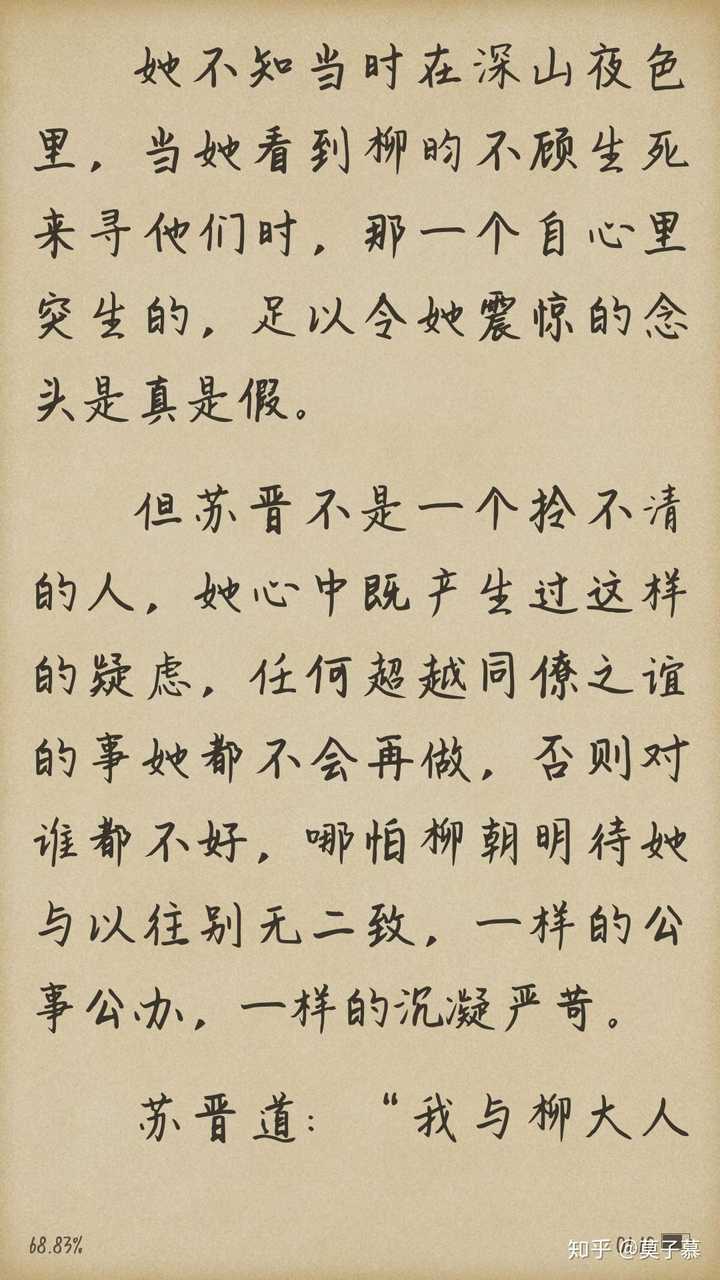 她不知当时在深山夜色
里，当她看到柳昀不顾生死
来寻他们时，那一个自心里
突生的，足以令她震惊的念
头是真是假。
但苏晋不是一个拎不清
的人，她心中既产生过这样
的疑虑，任何超越同僚之谊
的事她都不会再做，否则对
谁都不好，哪怕柳朝明待她
与以往别无二致，一样的公
事公办，一样的沉凝严苛。
苏晋道：“我与柳大人
68.83%
知乎 @莫子慕